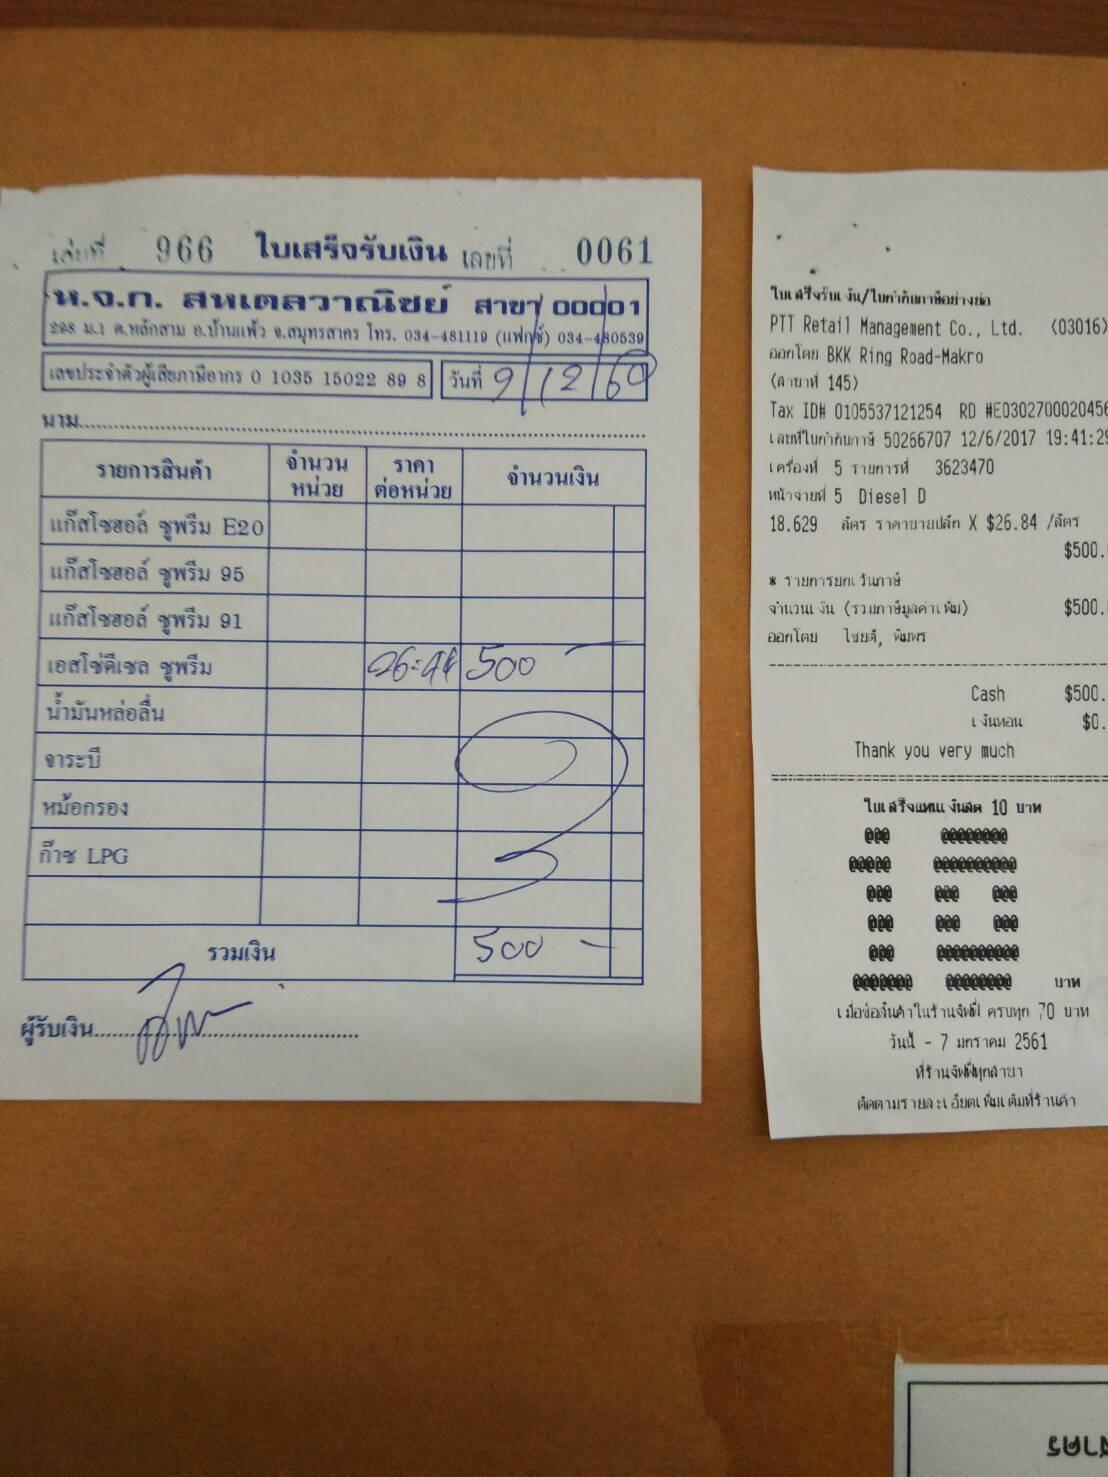 เล่มที่ 966 ใบเสร็จรับเงิน เลขที่ 0061
ห.จ.ก. สหเตลวาณิชย์ สาขา 00001
298 ม.1 ต.หลักสาม อ.บ้านแพ้ว จ.สมุทรสาคร โทร. 034-481119 (แฟกซ์) 034-480539
เลขประจำตัวผู้เสียภาษีอากร 0 1035 15022 89 8 วันที่ 9/12/60
นาม
รายการสินค้า จำนวนหน่วย ราคาต่อหน่วย จำนวนเงิน
แก๊สโซฮอล์ ซูพรีม E20
แก๊สโซฮอล์ ซูพรีม 95
แก๊สโซฮอล์ ซูพรีม 91
เอสโซ่ดีเซล ซูพรีม 500 -
น้ำมันหล่อลื่น
จาระบี
หม้อกรอง
ก๊าซ LPG
รวมเงิน 500 -
ผู้รับเงิน
ใบเสร็จรับเงิน/ใบกำกับภาษีอย่างย่อ
PTT Retail Management Co., Ltd. (03016)
ออกโดย BKK Ring Road-Makro
(สาขาที่ 145)
Tax ID# 0105537121254 RD #E0302700020456
เลขที่ใบกำกับภาษี 50266707 12/6/2017 19:41:29
เครื่องที่ 5 รายการที่ 3623470
หน้าจ่ายที่ 5 Diesel D
18.629 ลิตร ราคาขายปลีก X $26.84 /ลิตร
$500.
* รายการยกเว้นภาษี
จำนวนเงิน (รวมภาษีมูลค่าเพิ่ม) $500.
ออกโดย ไชยดี, พิมพร
Cash $500.
เงินทอน $0.
Thank you very much
ใบเสร็จแทนเงินสด 10 บาท
@@@ @@@@@@@@
@@@@@ @@@@@@@@@@
@@@ @@@ @@@
@@@ @@@ @@@
@@@ @@@@@@@@@@
@@@@@@@ @@@@@@@@ บาท
เมื่อซื้อสินค้าในร้านจิฟฟี่ ครบทุก 70 บาท
วันนี้ - 7 มกราคม 2561
ที่ร้านจิฟฟี่ทุกสาขา
ติดตามรายละเอียดเพิ่มเติมที่ร้านค้า